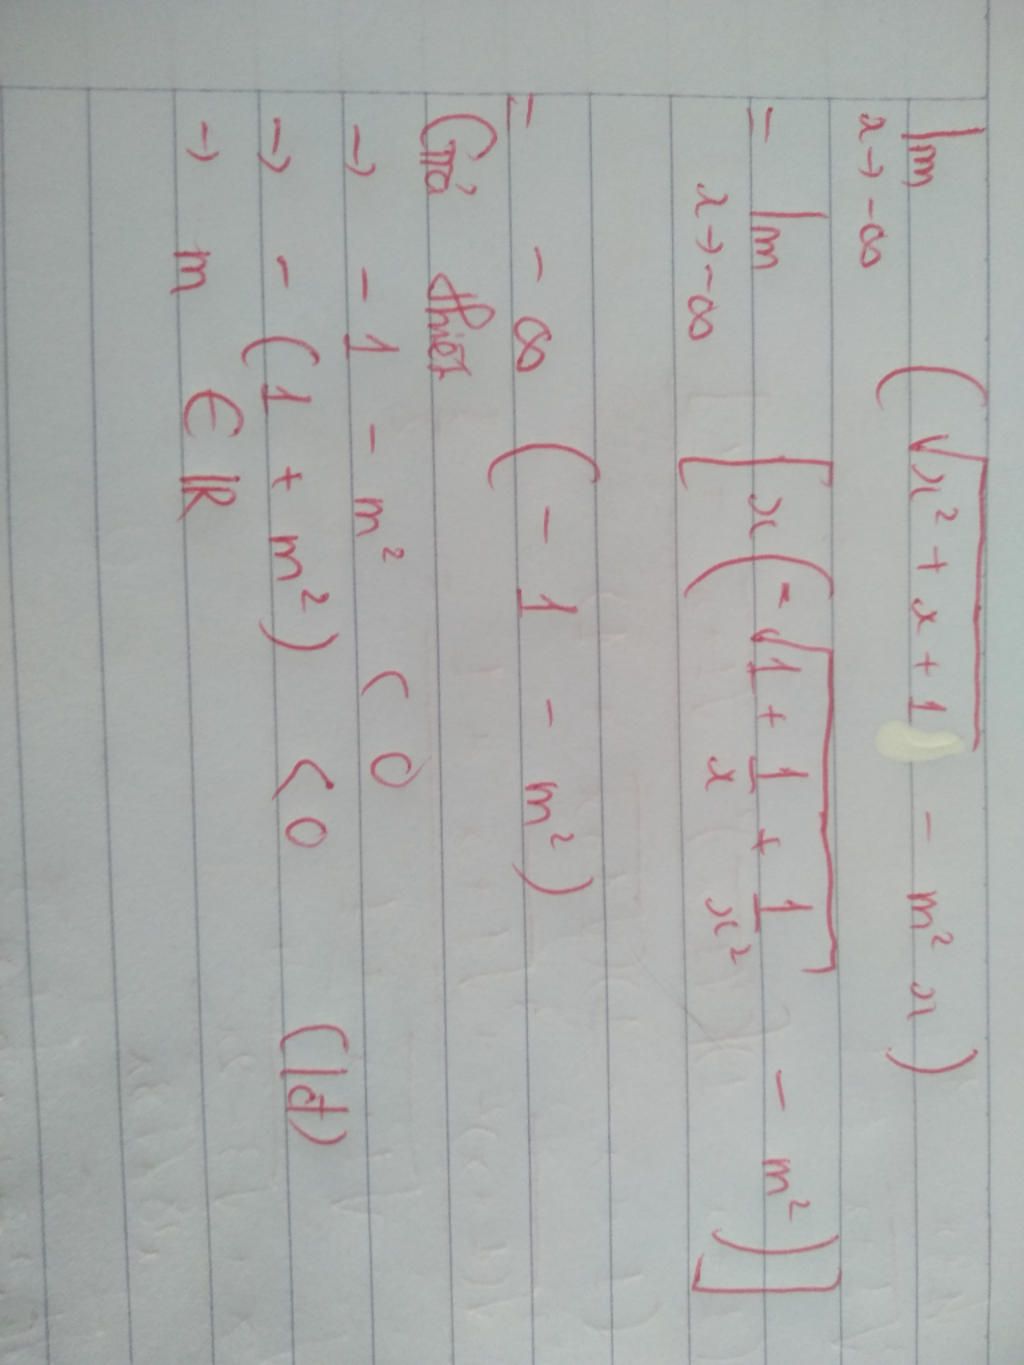 lim x→-∞ (√(x² + x + 1) - m² x)
= lim x→-∞ [x (-√(1 + 1/x + 1/x²) - m²)]
= -∞ (-1 - m²)
Giả thiết
→ -1 - m² < 0
→ -(1 + m²) < 0 (lđ)
→ m ∈ ℝ